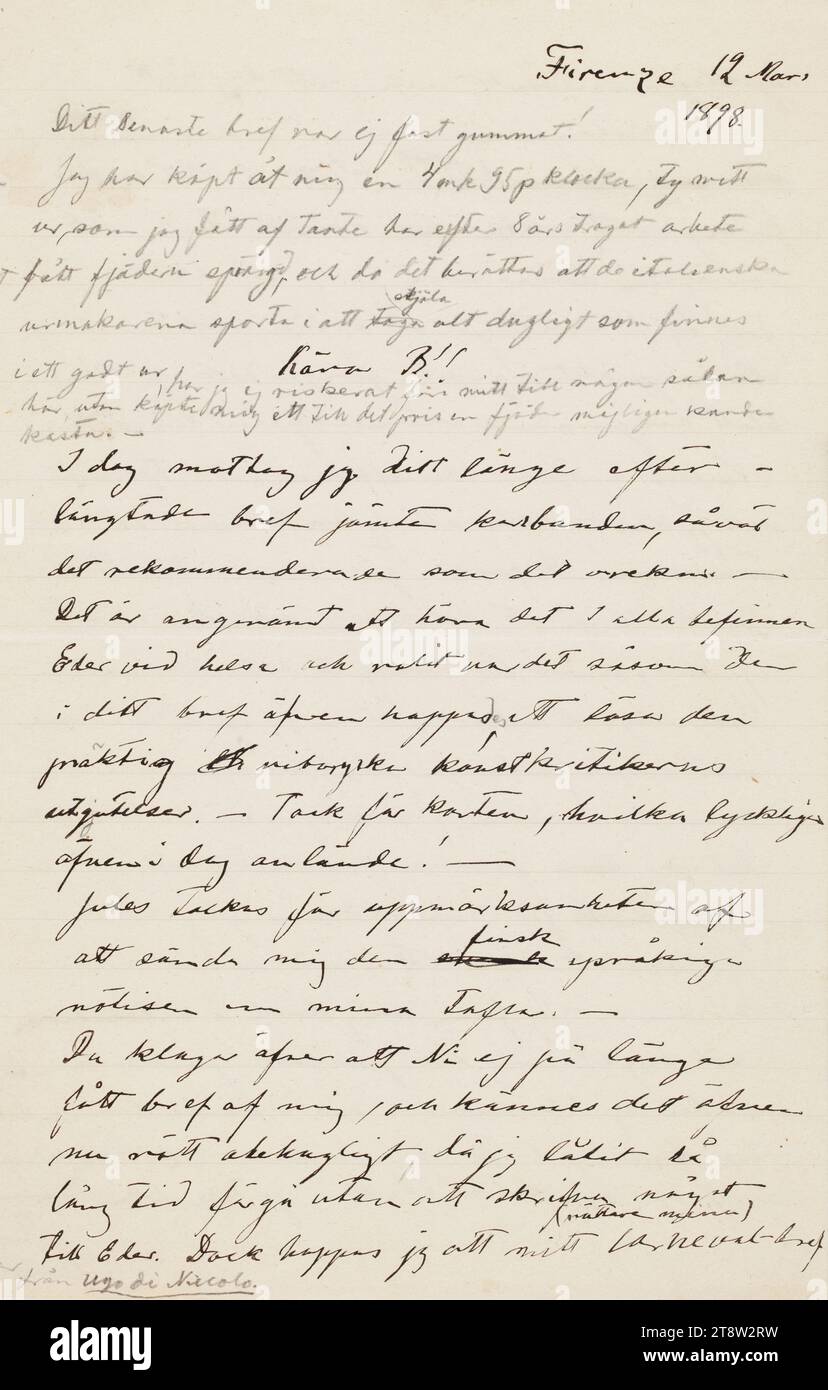 Firenze 12 Mars
1898.
Ditt senaste bref var ej fast gummat!
Jag har köpt åt mig en 4mk 95p klocka, ty mitt
ur, som jag fått af Tante har efter 8 års troget arbete
fått fjädern spräng, och då det berättas att de italienska
urmakarena sporta i att stjäla allt dugligt som finnes
i ett godt ur, har jag ej riskerat föra mitt till någon sådan
här, utan köpte mig ett till det pris en fjäder möjligen kunde
kosta. —
Kära B!!
I dag mottog jag Ditt länge efter-
längtade bref jämte korsbanden, såväl
det rekommenderade som det orekm. —
Det är angenämt att höra det I alla befinnen
Eder vid helsa och valit var det såsom Du
i ditt bref äfven hoppades, att läsa den
präktig viborgska konstkritikerns
utgjutelser. — Tack för korten, hvilka lyckligen
äfven i dag anlände! —
Jules tackas för uppmärksamheten af
att sända mig den finsk språkiga
nötisen om mina taflor. —
Du klagar öfver att Ni ej på länge
fått bref af mig, och kännes det äfven
nu rätt obehagligt då jag låtit så
lång tid förgå utan att skrifva något
till Eder. Dock hoppas jag att mitt (rättare mina) karneval-bref
från Ugo di Niccolo.
alamy
Image ID: 2T8W2RW
www.alamy.com